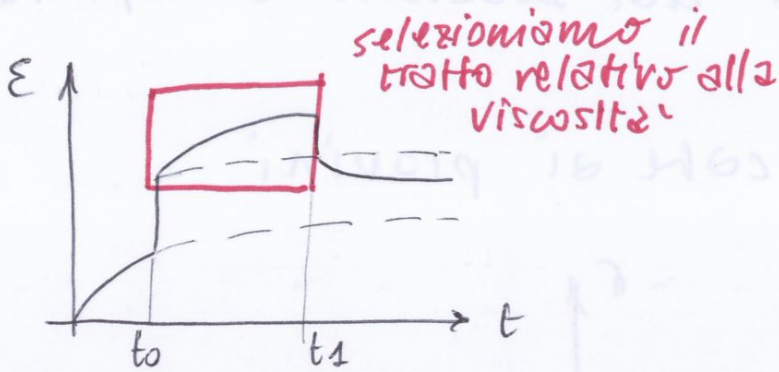 selezioniamo il
tratto relativo alla
viscosità
ε
t
t0
t1